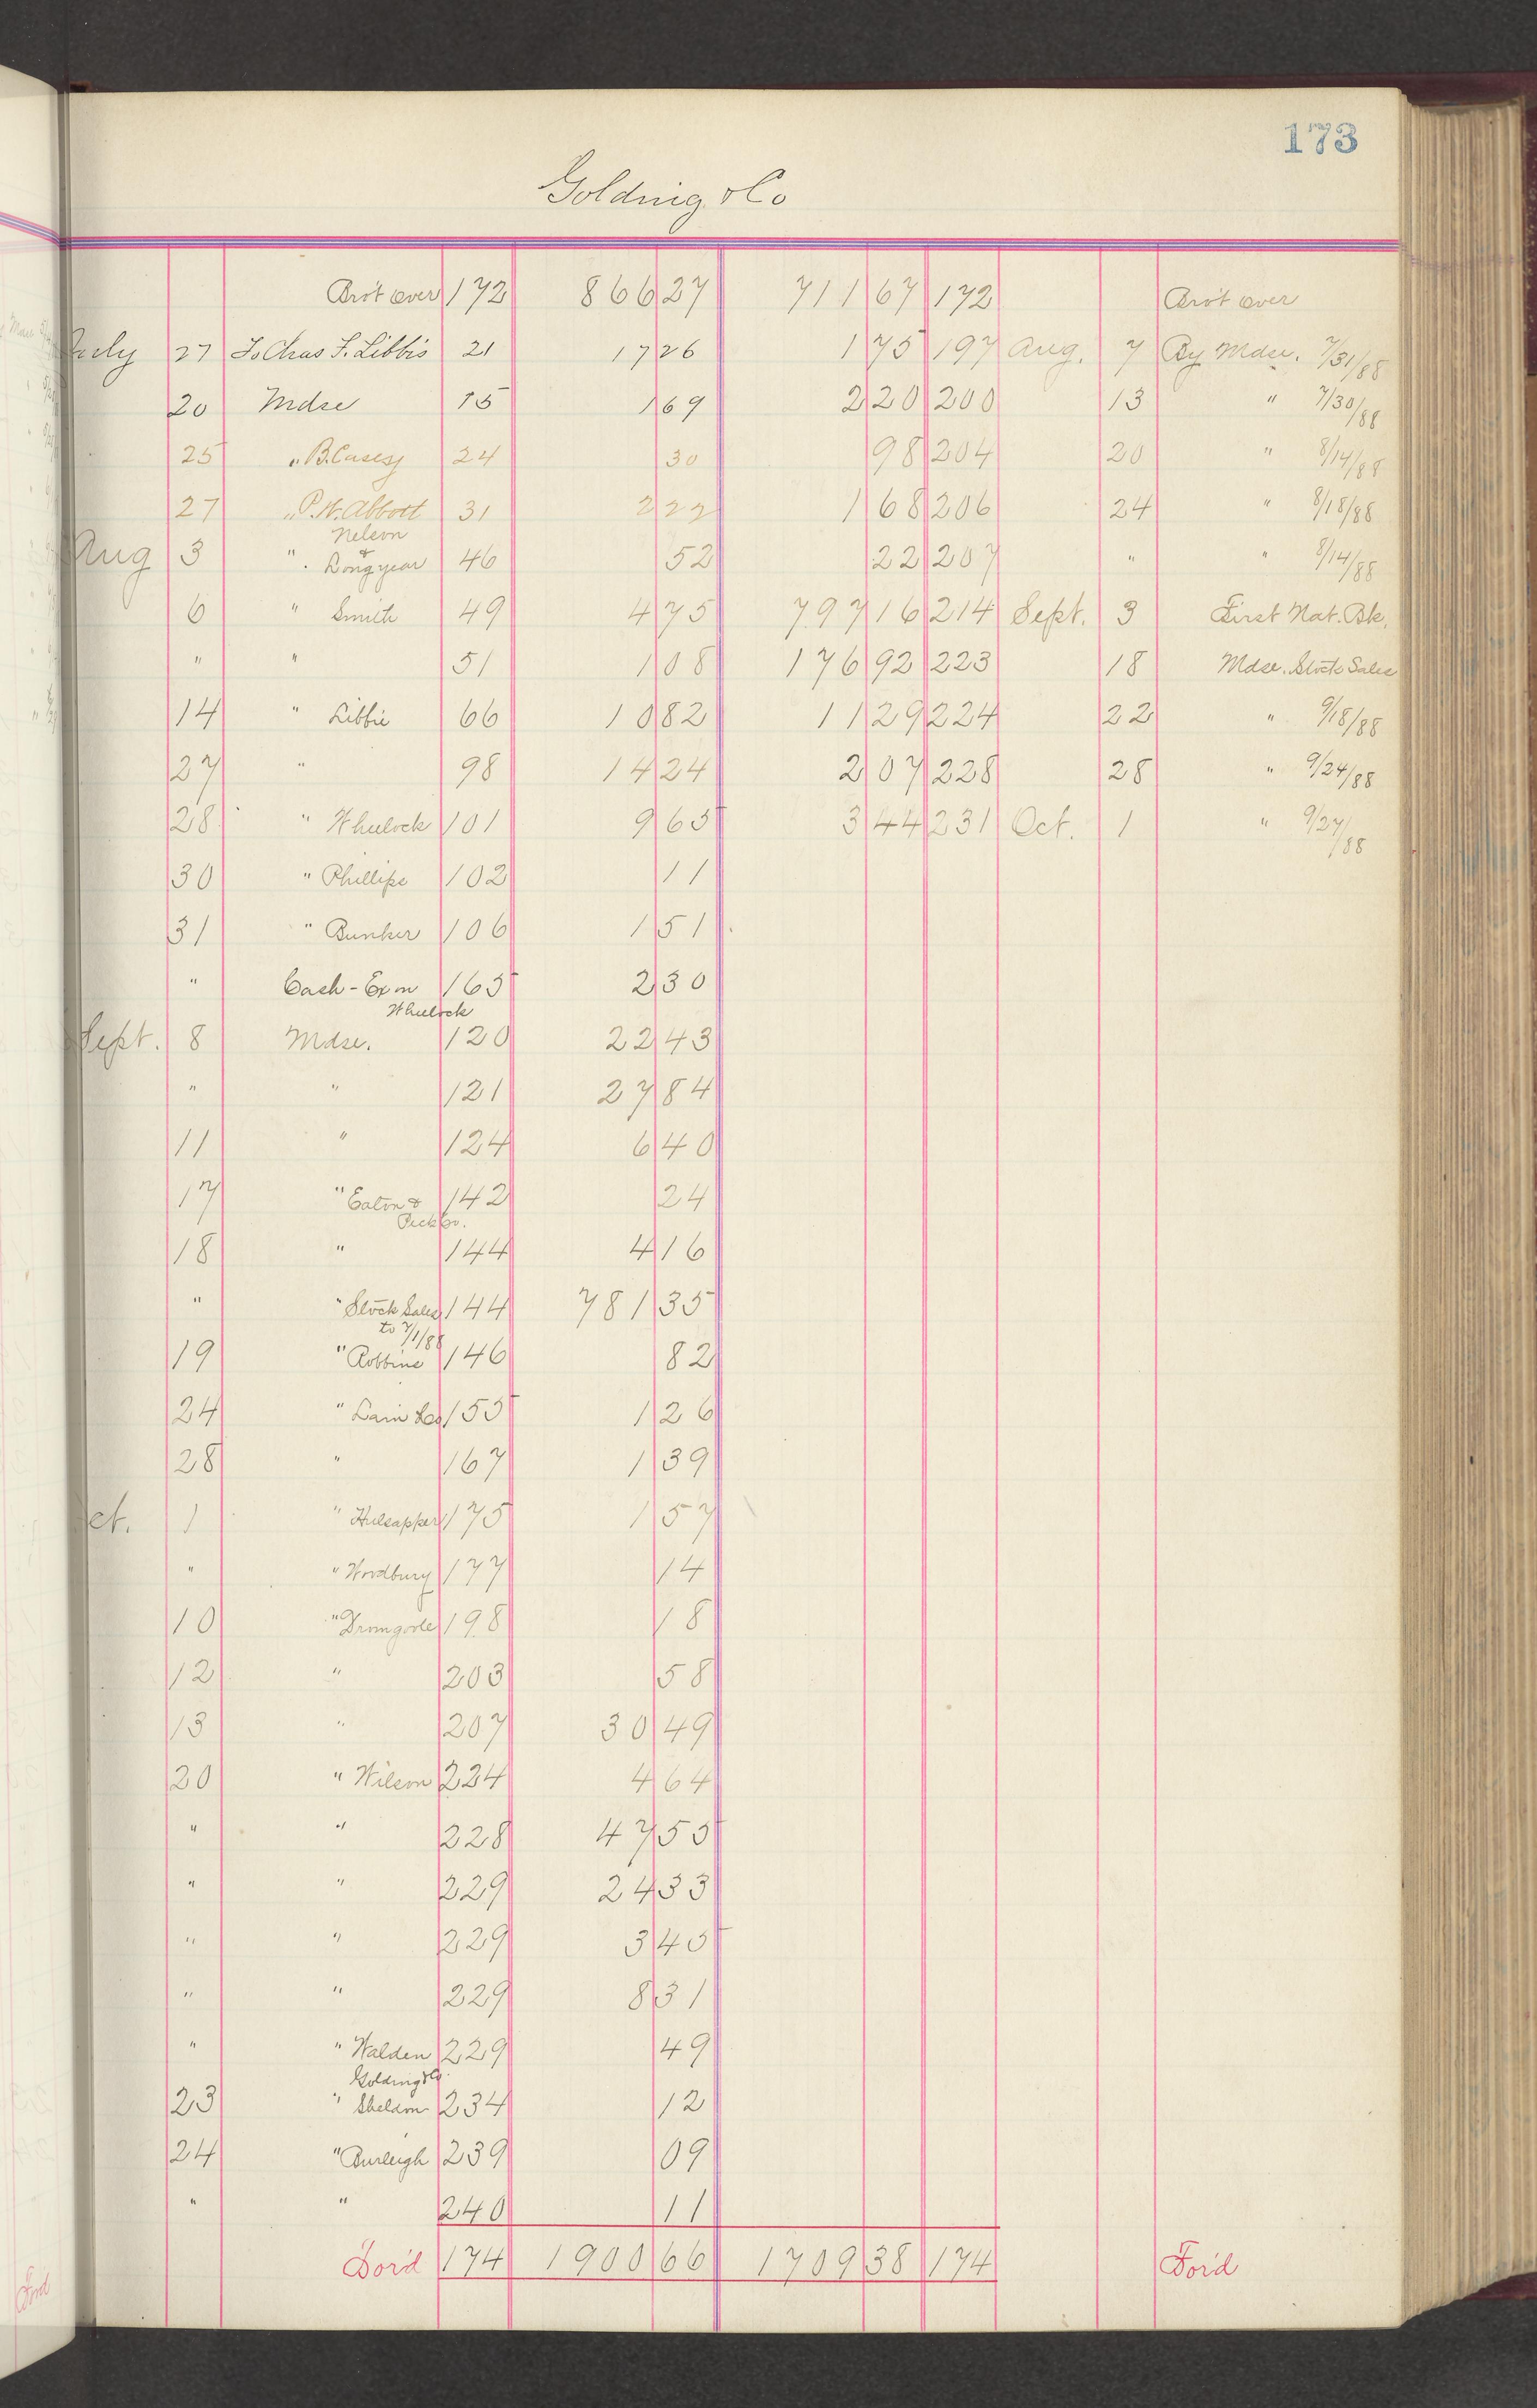 173
Golding & Co
Bro't over 172 866 27 711 67 172 Bro't over
July 27 To Chas F. Libbie 21 17 26 1 75 197 Aug. 7 By Mdse. 7/31/88
20 Mdse 15 1 69 2 20 200 13 " 7/30/88
25 " B. Casey 24 30 98 204 20 " 8/14/88
27 " P.W. Abbott 31 2 22 1 68 206 24 " 8/18/88
Nelson
Aug 3 " & Longyear 46 52 22 207 " " 8/14/88
6 " Smith 49 4 75 797 16 214 Sept. 3 First Nat. Bk.
" " 51 1 08 176 92 223 18 Mdse. Stock Sales
14 " Libbie 66 10 82 11 29 224 22 " 9/18/88
27 " 98 14 24 2 07 228 28 " 9/24/88
28 " Wheelock 101 9 65 3 44 231 Oct. 1 " 9/27/88
30 " Phillips 102 11
31 " Bunker 106 1 51
" Cash - Ex on 165 2 30
Wheelock
Sept. 8 Mdse. 120 22 43
" " 121 27 84
11 " 124 6 40
17 " Eaton & 142 24
Peck Co.
18 " 144 4 16
" " Stock Sales 144 781 35
to 7/1/88
19 " Robbins 146 82
24 " Lain & Co 155 1 26
28 " 167 1 39
ct. 1 " Hulsapper 175 1 57
" " Woodbury 177 14
10 " Dromgoole 198 18
12 " 203 58
13 " 207 30 49
20 " Wilson 224 4 64
" " 228 47 55
" " 229 24 33
" " 229 3 45
" " 229 8 31
" " Walden 229 49
Golding & Co.
23 " Sheldon 234 12
24 " Burleigh 239 09
" " 240 11
For'd 174 1900 66 1709 38 174 For'd